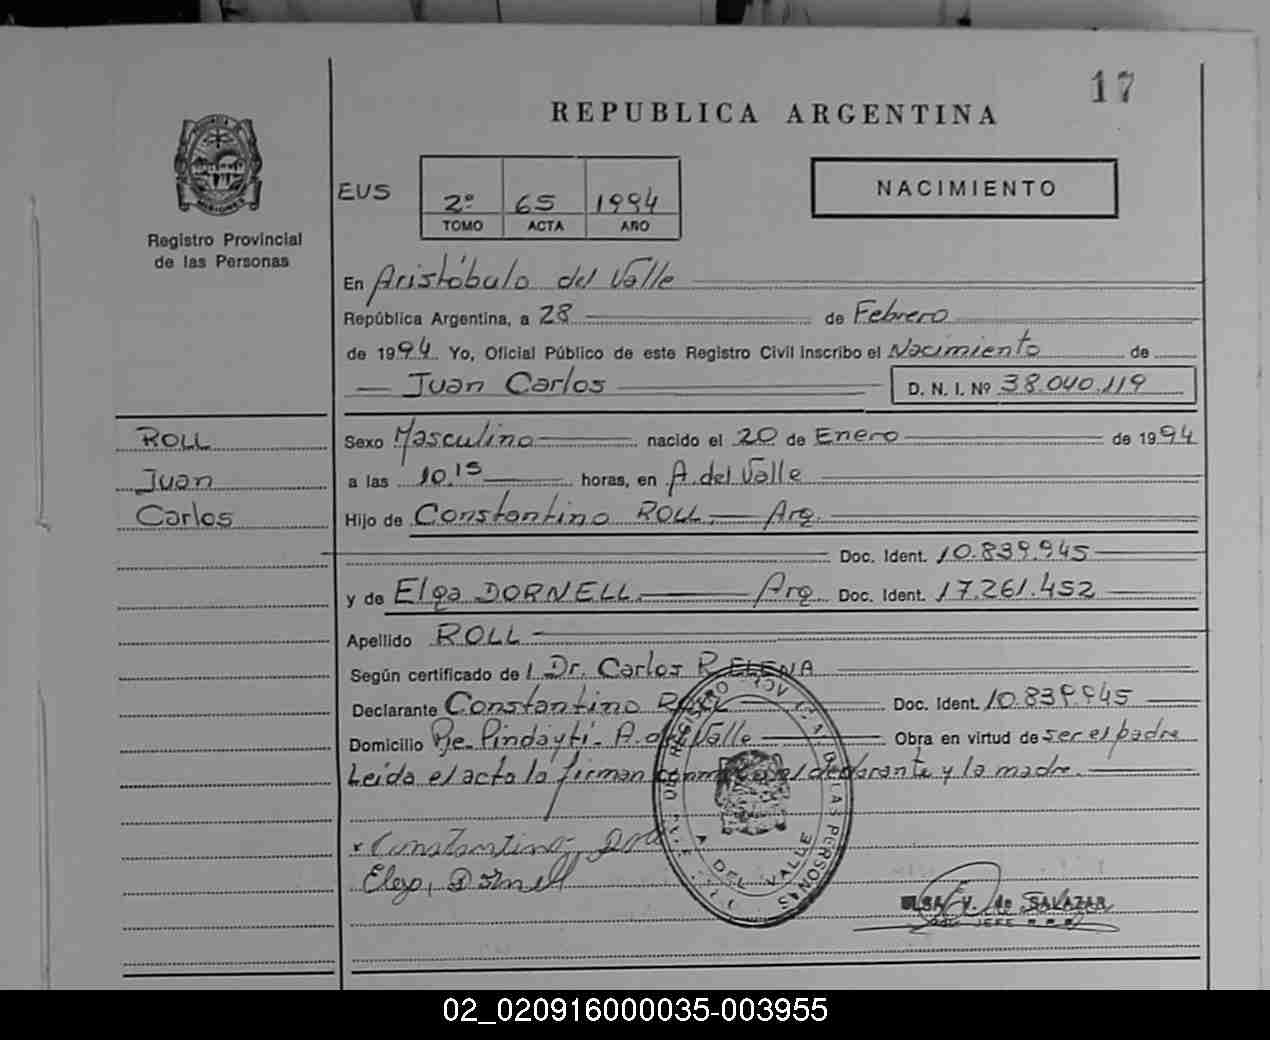 17
REPUBLICA ARGENTINA
PROVINCIA
MISIONES
Registro Provincial
de las Personas
EUS
2º 65 1994
TOMO ACTA AÑO
NACIMIENTO
En Aristóbulo del Valle
República Argentina, a 28 de Febrero
de 1994 Yo, Oficial Público de este Registro Civil inscribo el Nacimiento de
Juan Carlos D. N. I. Nº 38.040.119
ROLL
Juan
Carlos
Sexo Masculino nacido el 20 de Enero de 1994
a las 10.15 horas, en A. del Valle
Hijo de Constantino ROLL. Arg.
Doc. Ident. 10.839.945
y de Elga DORNELL. Arg. Doc. Ident. 17.261.452
Apellido ROLL
Según certificado de l Dr. Carlos R. ELENA
Declarante Constantino ROLL Doc. Ident. 10.839.945
Domicilio Pje. Pindaytí - A. del Valle Obra en virtud de ser el padre
Leída el acta la firman conmigo el declarante y la madre.
Constantino, Roll
Elga, Dornell
DEL REGISTRO PROVINCIAL DE LAS PERSONAS
A DEL VALLE
ELSA V. de SALAZAR
JEFE R.P.P.
02_020916000035-003955